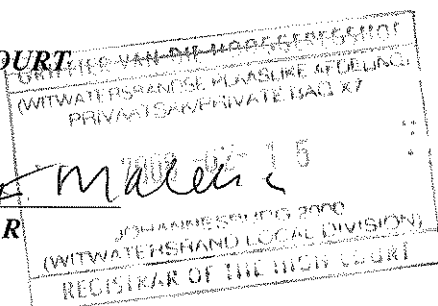 COURT
GRIFFIER VAN DIE HOOGGEREGSHOF
(WITWATERSRANDSE PLAASLIKE AFDELING)
PRIVAATSAK/PRIVATE BAG X7
-02- 15
R
JOHANNESBURG 2000
(WITWATERSRAND LOCAL DIVISION)
REGISTRAR OF THE HIGH COURT